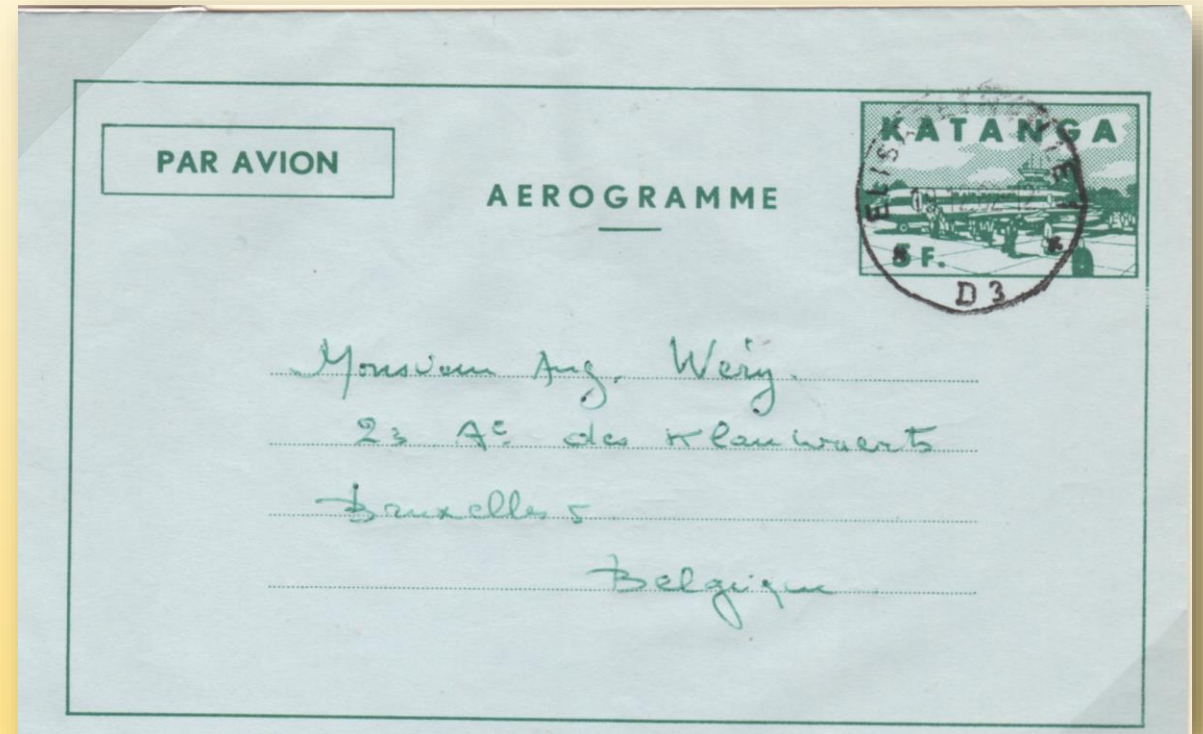 PAR AVION
AEROGRAMME
KATANGA
5 F.
D 3
Monsieur Aug. Wéry.
23 Ae des Klauwaerts
Bruxelles 5
Belgique